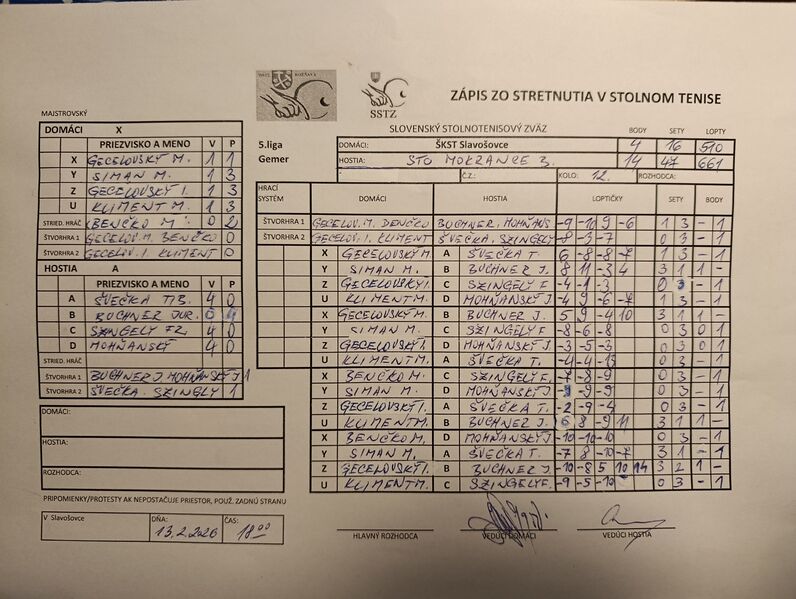 SSTZ ROŽŇAVA
SSTZ
ZÁPIS ZO STRETNUTIA V STOLNOM TENISE
SLOVENSKÝ STOLNOTENISOVÝ ZVÄZ
BODY SETY LOPTY
5.liga DOMÁCI: ŠKST Slavošovce 4 16 510
Gemer HOSTIA: STO MOKRANCE B. 14 47 661
Č.Z.: KOLO: 12. ROZHODCA:
MAJSTROVSKÝ
DOMÁCI X
PRIEZVISKO A MENO V P
X GECELOVSKÝ M. 1 1
Y SIMAN M. 1 3
Z GECELOVSKÝ I. 1 3
U KLIMENT M. 1 3
STRIED. HRÁČ BENČKO M. 0 2
ŠTVORHRA 1 GECELOV. M. BENČKO 0
ŠTVORHRA 2 GECELOV. I. KLIMENT 0
HOSTIA A
PRIEZVISKO A MENO V P
A ŠVEČKA TIB. 4 0
B BUCHNER JUR. 0 4
C SZINGELY FR. 4 0
D MOHŇANSKÝ 4 0
STRIED. HRÁČ
ŠTVORHRA 1 BUCHNER J. MOHŇANSKÝ J 1
ŠTVORHRA 2 ŠVEČKA. SZINGLY 1
DOMÁCI:
HOSTIA:
ROZHODCA:
PRIPOMIENKY/PROTESTY AK NEPOSTAČUJE PRIESTOR, POUŽ. ZADNÚ STRANU
V Slavošovce DŇA: 13.2.2026 ČAS: 18 00
HRACÍ SYSTÉM DOMÁCI HOSTIA LOPTIČKY SETY BODY
ŠTVORHRA 1 GECELOV. M. BENČKO BUCHNER. MOHŇANS -9 -10 9 -6 1 3 - 1
ŠTVORHRA 2 GECELOV. I. KLIMENT ŠVEČKA. SZINGELY -8 -3 -7 0 3 - 1
X GECELOVSKÝ M. A ŠVEČKA T. 6 -8 -8 -7 1 3 - 1
Y SIMAN M. B BUCHNER J. 8 11 -3 4 3 1 1 -
Z GECELOVSKÝ I. C SZINGELY F. -4 -1 -3 0 3 - 1
U KLIMENT M. D MOHŇANSKÝ J -4 9 -6 -7 1 3 - 1
X GECELOVSKÝ M. B BUCHNER J. 5 9 -4 10 3 1 1 -
Y SIMAN M. C SZINGELY F -8 -6 -8 0 3 0 1
Z GECELOVSKÝ I. D MOHŇANSKÝ J -3 -5 -3 0 3 0 1
U KLIMENT M. A ŠVEČKA T. -4 -4 0 3 - 1
X BENČKO M. C SZINGELY F. -7 -8 -9 0 3 - 1
Y SIMAN M. D MOHŇANSKÝ J -9 -9 0 3 - 1
Z GECELOVSKÝ I. A ŠVEČKA T. -2 -9 -4 0 3 - 1
U KLIMENT M. B BUCHNER J. 6 8 -9 11 3 1 1 -
X BENČKO M. D MOHŇANSKÝ J. -10 -10 -10 0 3 - 1
Y SIMAN M. A ŠVEČKA T. -7 8 -10 -7 3 1 - 1
Z GECELOVSKÝ I. B BUCHNER J. -10 -8 5 10 14 3 2 1 -
U KLIMENT M. C SZINGELY F. -9 -5 -10 0 3 - 1
HLAVNÝ ROZHODCA VEDÚCI DOMÁCI VEDÚCI HOSTIA